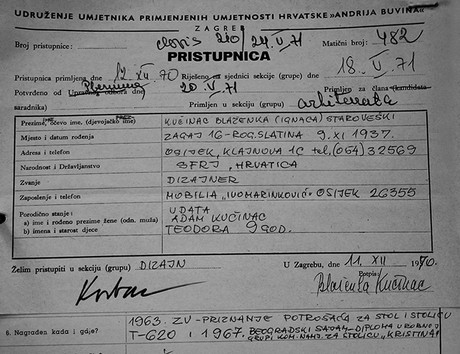 UDRUŽENJE UMJETNIKA PRIMJENJENIH UMJETNOSTI HRVATSKE »ANDRIJA BUVINA«
ZAGREB
Broj pristupnice: dopis 210/24.V.71 Matični broj: 482
PRISTUPNICA
Pristupnica primljena dne 12.XII 70 Riješeno na sjednici sekcije (grupe) 18.V.71
Potvrđeno od Upravnog odbora dne 20.V.71 Primljen za člana (kandidata-
saradnika) Primljen u sekciju (grupu)
Prezime, očevo ime, (djevojačko ime) KUČINAC BLAŽENKA (IGNACA) STAROVEŠKI
Mjesto i datum rođenja ZAGAJ 16-ROG.SLATINA 9.XI 1937.
Adresa i telefon OSIJEK, KLAJNOVA 1C tel.(054) 32569
Narodnost i Državljanstvo SFRJ, HRVATICA
Zvanje DIZAJNER
Zaposlenje i telefon MOBILIA "IVO MARINKOVIĆ" OSIJEK 26355
Porodično stanje: UDATA
a) ime i rođeno prezime žene (odn. muža) ADAM KUČINAC
b) imena i starost djece TEODORA 9 GOD.
Želim pristupiti u sekciju (grupu) DIZAJN U Zagrebu, dne 11.XII 1970.
Potpis:
Blaženka Kučinac
1963. ZV-PRIZNANJE POTROŠAČA ZA STOL I STOLICU
6. Nagrađen kada i gdje? T-620 I 1967. BEOGRADSKI SAJAM-DIPLOMA U ROBNOJ
GRUPI KOM. NAMJ. ZA STOLICU "KRISTINA"